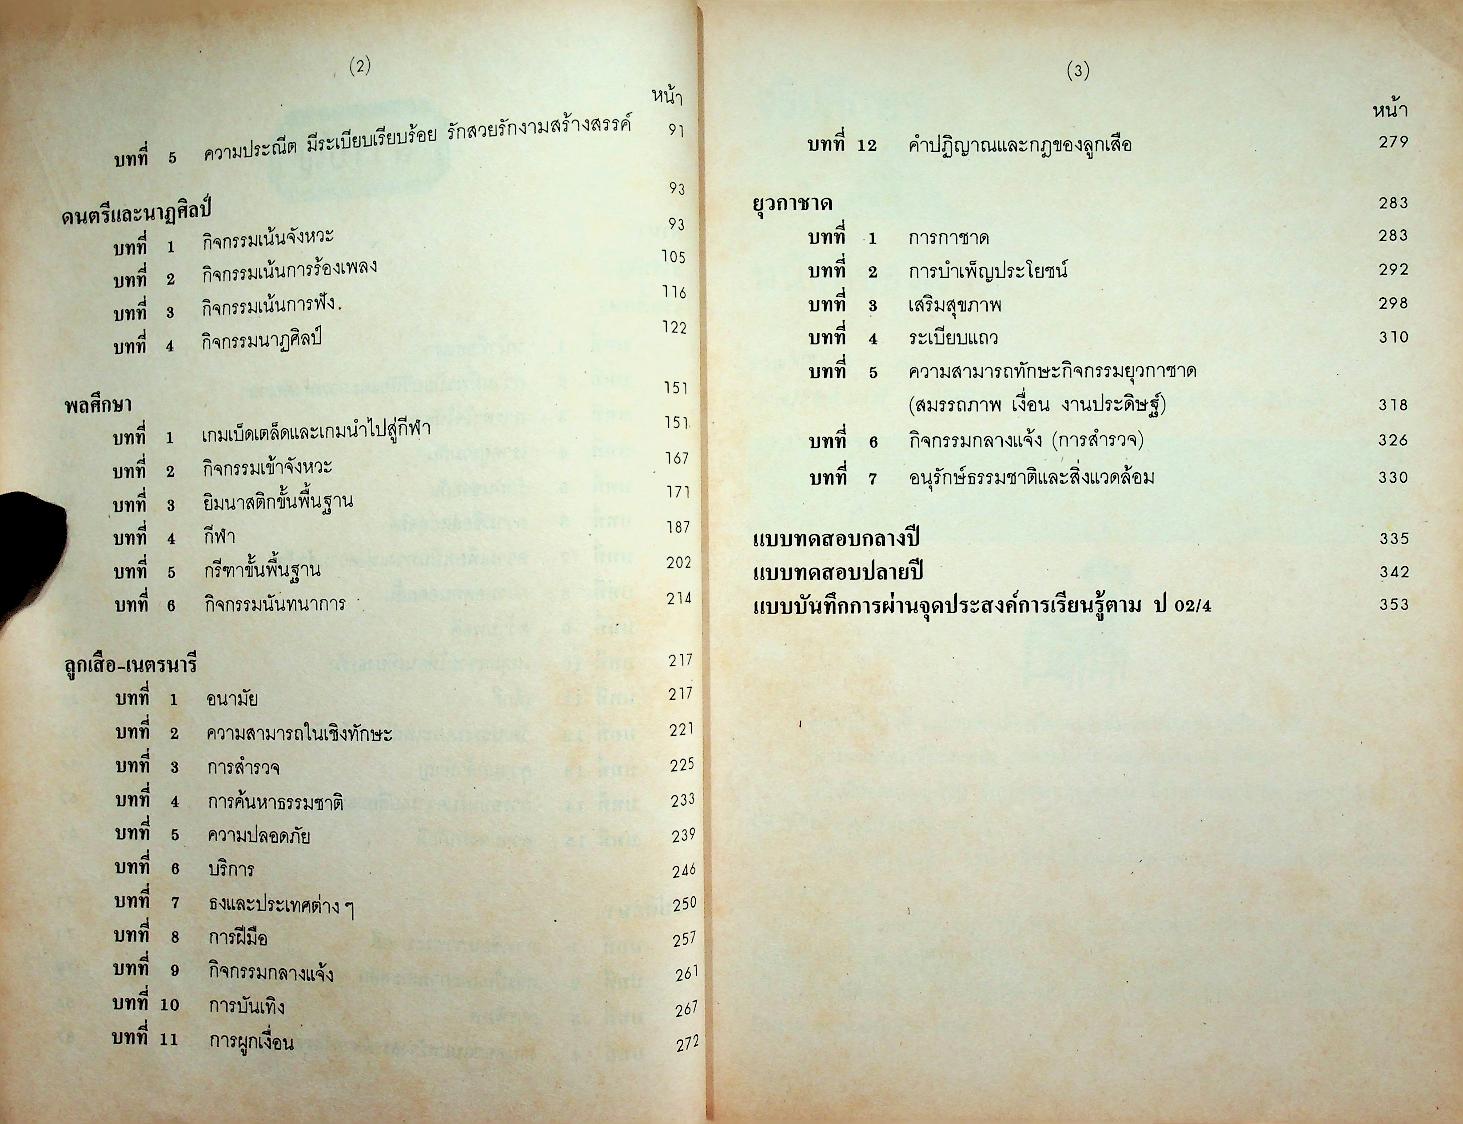 (2)
หน้า
บทที่ 5 ความประณีต มีระเบียบเรียบร้อย รักสวยรักงามสร้างสรรค์ 91
ดนตรีและนาฏศิลป์ 93
บทที่ 1 กิจกรรมเน้นจังหวะ 93
บทที่ 2 กิจกรรมเน้นการร้องเพลง 105
บทที่ 3 กิจกรรมเน้นการฟัง. 116
บทที่ 4 กิจกรรมนาฏศิลป์ 122
พลศึกษา 151
บทที่ 1 เกมเบ็ดเตล็ดและเกมนำไปสู่กีฬา 151
บทที่ 2 กิจกรรมเข้าจังหวะ 167
บทที่ 3 ยิมนาสติกขั้นพื้นฐาน 171
บทที่ 4 กีฬา 187
บทที่ 5 กรีฑาขั้นพื้นฐาน 202
บทที่ 6 กิจกรรมนันทนาการ 214
ลูกเสือ-เนตรนารี 217
บทที่ 1 อนามัย 217
บทที่ 2 ความสามารถในเชิงทักษะ 221
บทที่ 3 การสำรวจ 225
บทที่ 4 การค้นหาธรรมชาติ 233
บทที่ 5 ความปลอดภัย 239
บทที่ 6 บริการ 246
บทที่ 7 ธงและประเทศต่าง ๆ 250
บทที่ 8 การฝีมือ 257
บทที่ 9 กิจกรรมกลางแจ้ง 261
บทที่ 10 การบันเทิง 267
บทที่ 11 การผูกเงื่อน 272
(3)
หน้า
บทที่ 12 คำปฏิญาณและกฎของลูกเสือ 279
ยุวกาชาด 283
บทที่ 1 การกาชาด 283
บทที่ 2 การบำเพ็ญประโยชน์ 292
บทที่ 3 เสริมสุขภาพ 298
บทที่ 4 ระเบียบแถว 310
บทที่ 5 ความสามารถทักษะกิจกรรมยุวกาชาด
(สมรรถภาพ เงื่อน งานประดิษฐ์) 318
บทที่ 6 กิจกรรมกลางแจ้ง (การสำรวจ) 326
บทที่ 7 อนุรักษ์ธรรมชาติและสิ่งแวดล้อม 330
แบบทดสอบกลางปี 335
แบบทดสอบปลายปี 342
แบบบันทึกการผ่านจุดประสงค์การเรียนรู้ตาม ป 02/4 353